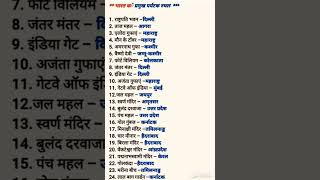 ** भारत के प्रमुख पर्यटक स्थल ***
1. राष्ट्रपति भवन –दिल्ली
2. ताज महल – आगरा
3. एलोरा गुफाएं –महाराष्ट्र
4. मौन के टॉवर –महाराष्ट्र
5. अमरनाथ गुफा –कश्मीर
6. वैष्णो देवी –जम्मू-कश्मीर
7. फोर्ट विलियम –कोलकाता
8. जंतर मंतर – दिल्ली
9. इंडिया गेट – दिल्ली
10. अजंता गुफाएं –महाराष्ट्र
11. गेटवे ऑफ इंडिया – मुंबई
12. जल महल – जयपुर
13. स्वर्ण मंदिर – अमृतसर
14. बुलंद दरवाजा –उत्तर प्रदेश
15. पंच महल –उत्तर प्रदेश
16. गोल गुंबज –कर्नाटक
17. मिनाक्षी मंदिर –तमिलनाडु
18. चार मीनार –हैदराबाद
19. बिरला मंदिर –हैदराबाद
20. वेंकटेश्वर मंदिर –आंध्रप्रदेश
21. पद्मनाभस्वामी मंदिर – केरल
22. गोलकोंडा – हैदराबाद
23. मरीना बीच –तमिलनाडु
24. लाल बाग गार्डन –कर्नाटक
7. फोर्ट विलियम
8. जंतर मंतर –
9. इंडिया गेट –
10. अजंता गुफाएं
11. गेटवे ऑफ
12.जल महल –
13. स्वर्ण मंदिर
14. बुलंद दरवा
15. पंच महल –